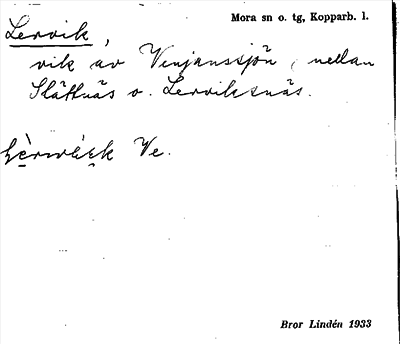 Mora sn o. tg, Kopparb. l.
Lervik,
vik av Venjanssjön, mellan
Slättnäs o. Lerviksnäs.
Ve.
Bror Lindén 1933